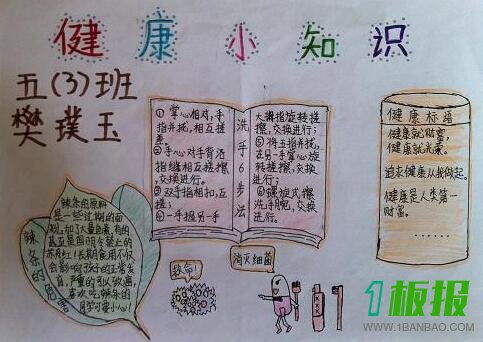 健康小知识
五(3)班
樊璞玉
洗手6步法
①掌心相对,手
指并拢,相互搓
②手心对手背沿
指缝相互搓擦,
交换进行;
③双手指相扣,互
搓;
④一手握另一手
大拇指旋转搓
擦,交换进行;
⑤将五指并拢,
在另一手掌心旋
转搓擦,交换
进行;
⑥螺旋式擦
洗手腕,交换
进行。
健康标语
健康就是财富,
健康就光荣。
追求健康从我做起。
健康是人类第一
财富。
......
辣条的危害
辣条的原料
是一些过期的面
粉,加了大量色素,有的
甚至是国明令禁止的
苏丹红!长期食用不仅
会影响孩子的正常发
育,严重的可以致癌,
喜欢吃辣条的
同学可要小心!
救命!
消灭细菌
1板报
WWW.1BANBAO.COM